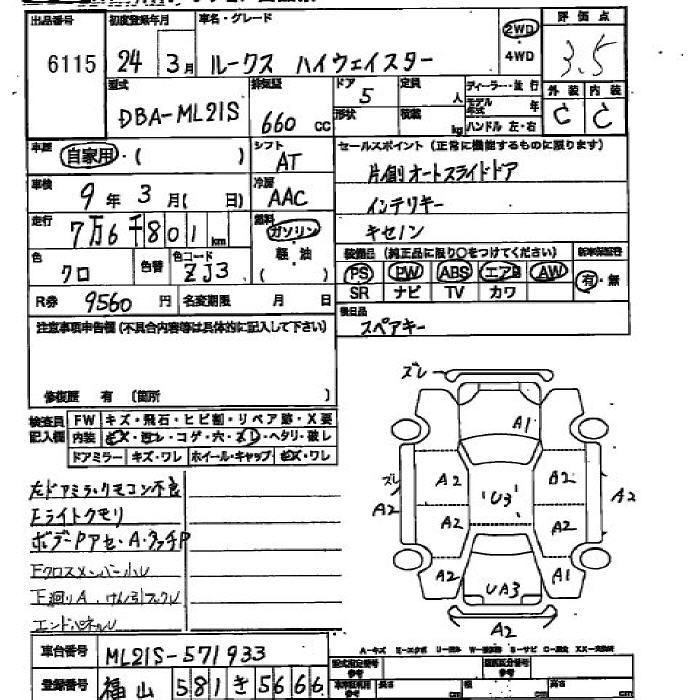 出品番号 6115
初度登録年月 24 3月
車名・グレード ルークス ハイウェイスター
2WD
・
4WD
評価点 3.5
外装 C 内装 C
型式 DBA-ML21S
排気量 660 CC
ドア 5
形状
定員 人
積載 kg
ディーラー・並行
モデル年式 年
ハンドル 左・右
車歴 自家用・( )
シフト AT
車検 9年 3月( 日)
冷房 AAC
走行 7万6千801km
燃料 ガソリン・軽油
( )
色 クロ
色替
色コード ZJ3
R券 9560円
名変期限 月 日
セールスポイント (正常に機能するものに限ります)
片側オートスライドドア
インテリキー
キセノン
装備品 (純正品に限り○をつけてください)
新車保証書 有・無
PS PW ABS エアB AW
SR ナビ TV カワ
後日品
スペアキー
注意事項申告欄 (不具合内容等は具体的に記入して下さい)
修復歴 有 (箇所 )
検査員記入欄
FW キズ・飛石・ヒビ割・リペア跡・X要
内装 キズ・コゲ・穴・ヘタリ・破レ
ドアミラー キズ・ワレ ホイール・キャップ キズ・ワレ
左ドアミラーリモコン不良
Fライトクモリ
Fクロスメンバー小U
下廻りA けん引フックU
エンドパネルU
ズレ
A1
ズレ
A2
A2
A2
U3
A2
A2
A2
A2
A1
UA3
A2
車台番号 ML21S-571933
登録番号 福山 581 き 5666
A-キズ E-エクボ
型式指定番号
類別区分番号
長さ cm
幅 cm
高さ cm